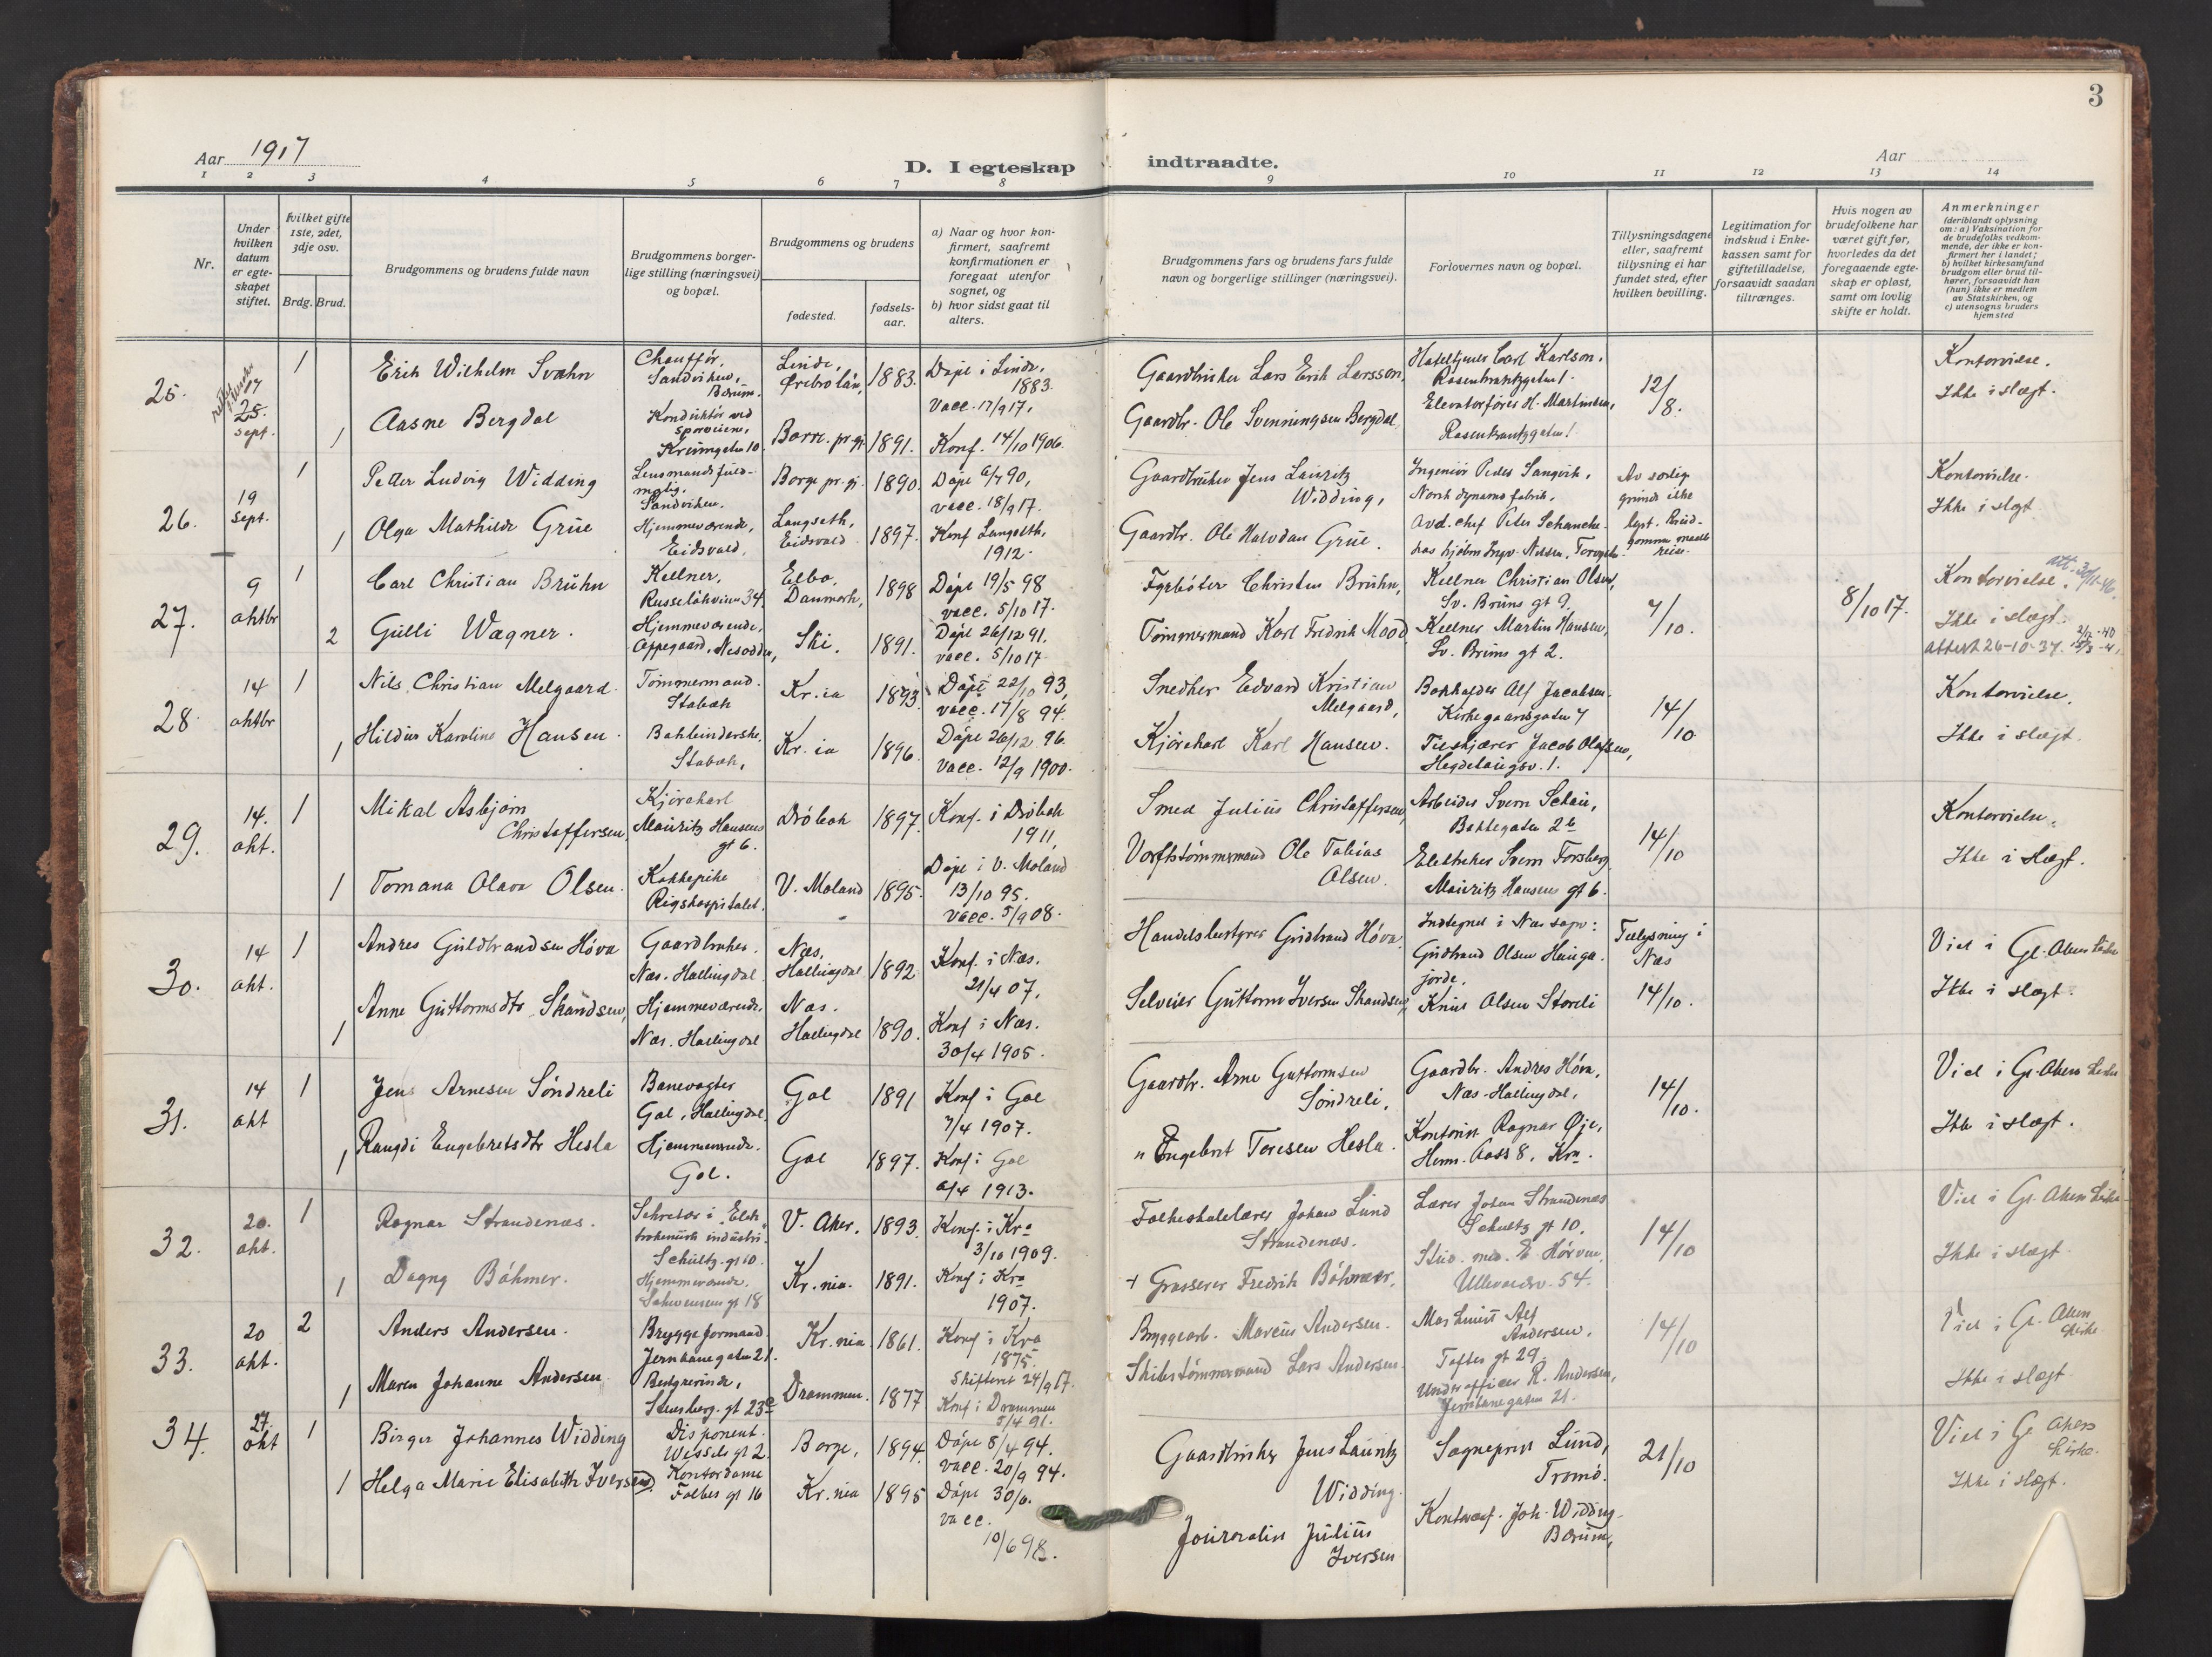 3
Aar 1917
D. I egteskap
indtraadte.
Aar
1 2 3 4 5 6 7 8 9 10 11 12 13 14
Nr.
Under hvilken datum er egteskapet stiftet.
hvilket gifte 1ste, 2det, 3dje osv.
Brdg. Brud.
Brudgommens og brudens fulde navn
Brudgommens borgerlige stilling (næringsvei) og bopæl.
Brudgommens og brudens
fødested.
fødselsaar.
a) Naar og hvor konfirmert, saafremt konfirmationen er foregaat utenfor sognet, og
b) hvor sidst gaat til alters.
Brudgommens fars og brudens fars fulde navn og borgerlige stillinger (næringsvei).
Forlovernes navn og bopæl.
Tillysningsdagene eller, saafremt tillysning ei har fundet sted, efter hvilken bevilling.
Legitimation for indskud i Enkekassen samt for giftetilladelse, forsaavidt saadan tiltrænges.
Hvis nogen av brudefolkene har været gift før, hvorledes da det foregaaende egteskap er opløst, samt om lovlig skifte er holdt.
Anmerkninger
(deriblandt oplysning om: a) Vaksination for de brudefolks vedkommende, der ikke er konfirmert her i landet;
b) hvilket kirkesamfund brudgom eller brud tilhører, forsaavidt han (hun) ikke er medlem av Statskirken, og
c) utensogns bruders hjemsted
25.
25. sept.
1
Erik Wilhelm Svahn
Chauffør, Sandviken, Bærum.
Linde, Ørebro län,
1883.
Døpt i Linde, 1883.
Vacc. 17/9 17.
Gaardbruker Lars Erik Larsson,
Hoteltjener Carl Karlson. Rosenkrantzgaten 1.
12/8.
Kontorvielse.
1
Aasne Bergdal
Konduktør ved sporveiene,
Borre. pr. gj.
1891.
Konf. 14/10 1906.
Gaardbr. Ole Svenningsen Bergdal
Elevatorfører H. Martinsen, Rosenkrantzgaten 1
Ikke i slægt.
26.
19 sept.
1
Peder Ludvig Widding
Lensmandsfuldmægtig. Sandviken.
Borge pr. gj.
1890.
Døpt 6/7 90, vacc. 18/9 17.
Gaardbruker Jens Lauritz Widding,
Ingeniør Peder Sangvik, Norsk dynamo fabrik,
Kontorvielse.
1
Olga Mathilde Grue
Hjemmeværende, Eidsvold.
Langseth, Eidsvold
1897.
Konf Langseth, 1912.
Gaardbr. Ole Halvdan Grue.
Avd. chef Peter Schancke
Ikke i slegt
27.
9 oktbr
1
Carl Christian Bruhn
Kellner, Russeløkveien 34.
Danmark,
1898
Døpt 19/5 98 vacc. 5/10 17.
Fyrbøter Christen Bruhn,
Kellner Christian Olsen, Sv. Bruns gt 9.
7/10.
8/10 17.
Kontorvielse.
2
Gulli Wagner.
Hjemmeværende, Oppegaard, Nesodden,
Ski.
1891.
Døpt 26/12 91. vacc. 5/10 17.
Tømmermand Karl Fredrik Mood
Kellner Martin Hansen, Sv. Bruns gt 2.
Ikke i slægt.
attest 26-10-37.
28.
14 oktbr
1
Nils Christian Melgaard.
Tømmermand. Stabæk
Kr.ia
1893.
Døpt 22/10 93, vacc. 17/8 94.
Snedker Edvard Kristian Melgaard,
Bokholder Alf Jacobsen. Kirkegaardsgaten 7
14/10
Kontorvielse.
1
Hildur Karoline Hansen.
Bokbinderske. Stabæk,
Kr. ia
1896.
Døpt 26/12 96. Vacc. 12/9 1900.
Kjørekarl Karl Hansen.
Tilskjærer Jacob Olafsen, Hegdehaugsv. 1.
Ikke i slægt.
29.
14. okt.
1
Mikal Asbjørn Christoffersen,
Kjørekarl Mauritz Hansens gt 6.
Drøbak
1897.
Konf. i Drøbak 1911,
Smed Julius Christoffersen,
Arbeider Svern Schau, Bakkegaten 2b
14/10
Kontorvielse.
1
Tomana Olava Olsen.
Kokkepike Rigshospitalet.
V. Moland
1895.
Døpt i V. Moland 13/10 95. Vacc. 5/9 08.
Verftstømmermand Ole Tobias Olsen.
Svern Forsberg Mauritz Hansens gt 6.
Ikke i slægt.
30.
14 okt.
1
Andres Guldbrandsen Høva
Gaardbruker. Næs. Hallingdal
Næs, Hallingdal
1892
Konf. i Næs. 21/4 07.
Handelsbestyrer Gudbrand Høva.
Indtegnet i Næs sogn: Gudbrand Olsen Haugajorde.
Tillysning i Næs 14/10.
Viet i Gl. Aker kirke
1
Anne Guttormsdtr Skandsen,
Hjemmeværende, Næs. Hallingdal
Næs. Hallingdal
1890.
Konf i Næs. 30/4 1905.
Selveier Guttorm Iversen Skandsen,
Knut Olsen Storeli
Ikke i slægt.
31.
14 okt
1
Jens Arnesen Søndreli
Banevogter Gol, Hallingdal
Gol
1891
Konf i Gol 7/4 1907.
Gaardbr. Arne Guttormsen Søndreli,
Gaardbr. Andres Høva, Næs. Hallingdal,
14/10.
Viet i Gl. Akers kirke
1
Rangdi Engebretsdtr Hesla
Hjemmeværende. Gol.
Gol
1897.
Konf i Gol 6/4 1913.
" Engebret Toresen Hesla.
Kontorist Ragnar Øje, Herm. Foss 8, Kra.
Ikke i slægt.
32.
20. okt.
1
Ragnar Strandenæs.
Sekretær i "Elektrokemisk industri." Schultz. gt 10.
V. Aker.
1893.
Konf. i Kra 3/10 1909.
Folkeskolelærer Johan Lund Strandenæs.
Lærer Johan Strandenæs Schultz gt 10.
14/10
Viet i Gl. Aker kirke
1
Dagny Bøhmer.
Hjemmeværende.
Kr.nia.
1891.
Konf i Kra 1907.
+ Grosserer Fredrik Bøhmer,
Stud. med. E. Hørven, Ullevoldsv. 54.
Ikke i slægt.
33.
20 okt.
2
Anders Andersen.
Bryggeformand. Jernbanegaten 21.
Kr.nia
1861.
Konf i Kra 1875. Skifteret 24/9 17.
Bryggearb. Marcus Andersen.
Maskinist Alf Andersen, Toftes gt 29.
14/10
Viet i Gl. Aker kirke
1
Maren Johanne Andersen
Bestyrerinde, Stensberg. gt 23
Drammen.
1877
Konf i Drammen 5/4 91.
Skibstømmermand Lars Andersen.
Underofficer R. Andersen, Jernbanegaten 21.
Ikke i slægt.
34.
27. okt
1
Birger Johannes Widding
Disponent. Wessels gt 2.
Borge,
1894.
Døpt 8/4 94. vacc. 20/9 94.
Gaardbruker Jens Lauritz Widding.
Sogneprest Lund, Tromø.
21/10
Viet i Gl Akers kirke.
1
Helga Marie Elisabeth Iversen.
Kontordame Falbes gt 16
Kr.nia
1895
Døpt 30/6. vacc. 10/6 98.
Journalist Julius Iversen
Joh. Widding. Bærum,
Ikke i slægt.